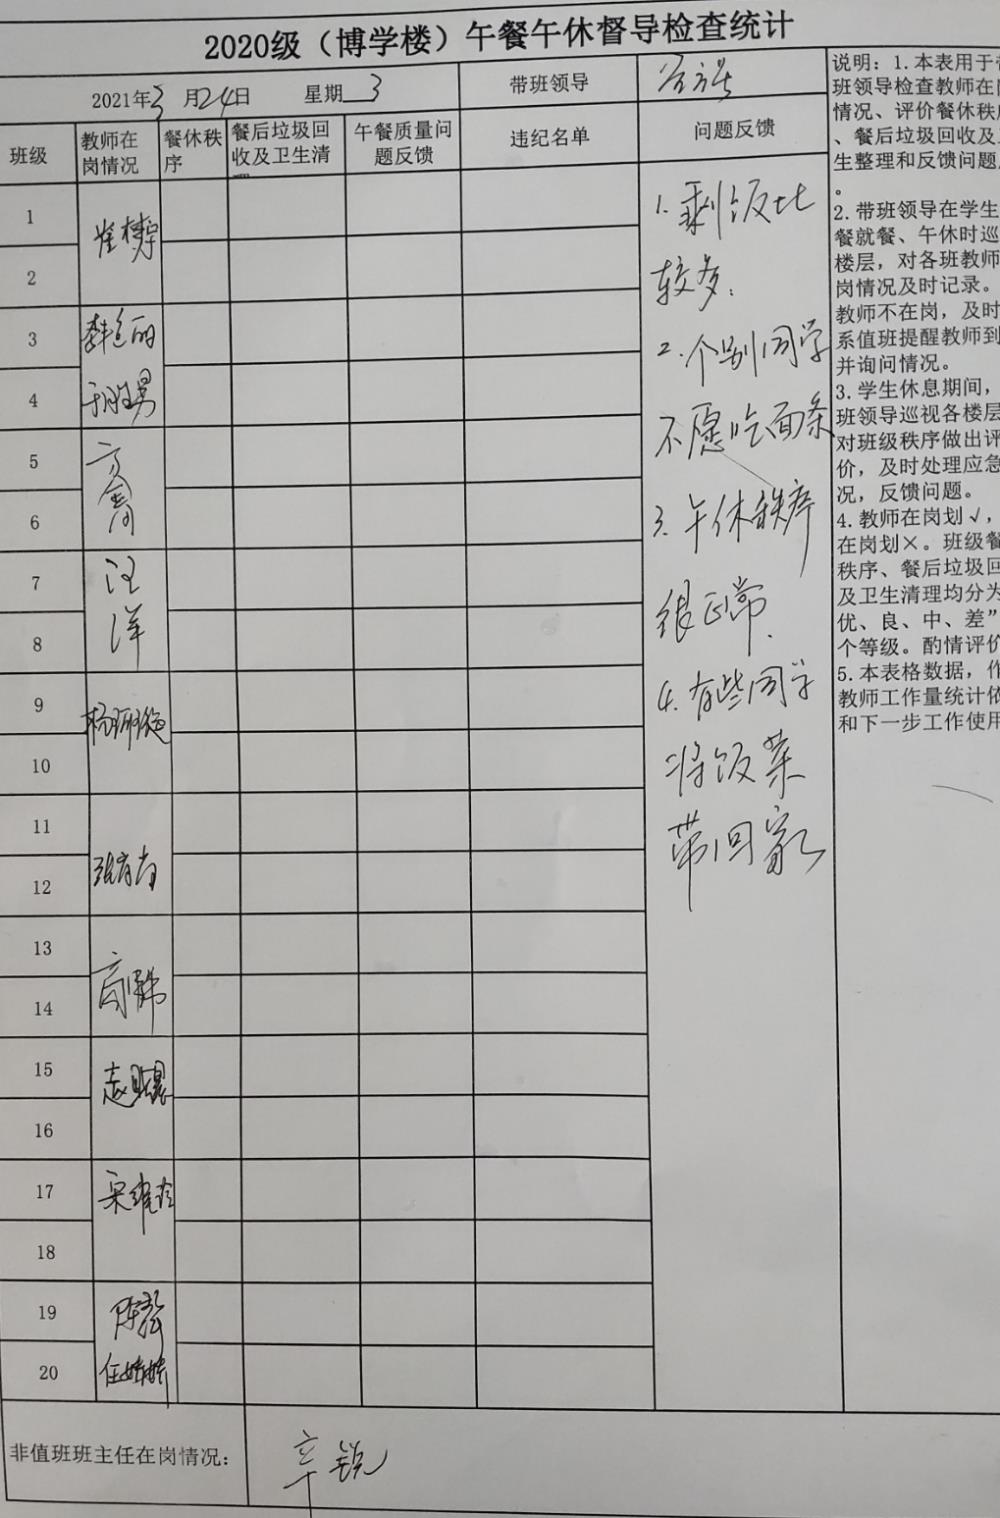 2020级（博学楼）午餐午休督导检查统计
2021年3月24日 星期3 带班领导
班级 教师在岗情况 餐休秩序 餐后垃圾回收及卫生清 午餐质量问题反馈 违纪名单 问题反馈
1
2
3
4 于胜男
5
6
7 汪
8 洋
9
10
11
12
13
14
15
16
17
18
19
20
1.剩饭比
较多.
2.个别同学
不愿吃面条
3.午休秩序
很正常.
4.有些同学
将饭菜
带回家
说明：1.本表用于
班领导检查教师在
情况、评价餐休秩
、餐后垃圾回收及
生整理和反馈问题
。
2.带班领导在学生
餐就餐、午休时巡
楼层，对各班教师
岗情况及时记录。
教师不在岗，及时
系值班提醒教师到
并询问情况。
3.学生休息期间，
班领导巡视各楼层
对班级秩序做出评
价，及时处理应急
况，反馈问题。
4.教师在岗划√，
在岗划×。班级餐
秩序、餐后垃圾回
及卫生清理均分为
优、良、中、差”
个等级。酌情评价
5.本表格数据，作
教师工作量统计依
和下一步工作使用
非值班班主任在岗情况： 辛锐